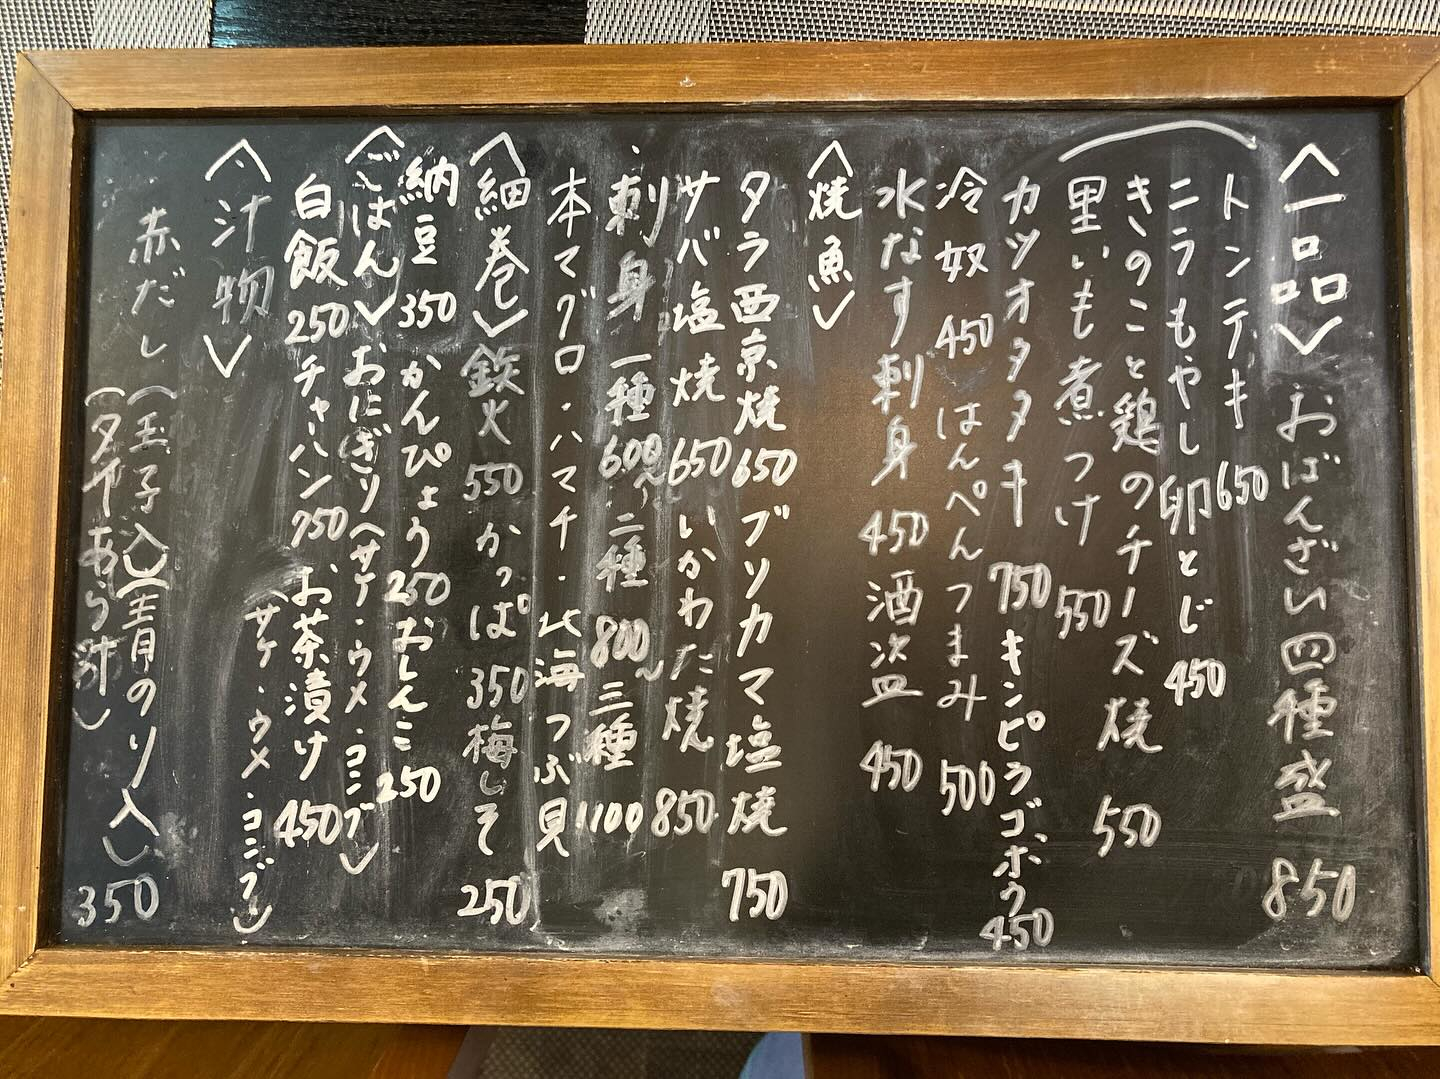 〈一品〉 おばんざい四種盛 850
トンテキ 650
ニラもやし卵とじ 450
きのこと鶏のチーズ焼 550
里いも煮つけ 550
カツオタタキ 750 キンピラゴボウ 450
冷奴 450 はんぺんつまみ 500
水なす刺身 450 酒盗 450
〈焼魚〉
タラ西京焼 650 ブリカマ塩焼 750
サバ塩焼 650 いかわた焼 850
・刺身 一種 600〜 二種 800〜 三種 1100
本マグロ・ハマチ・北海つぶ貝
〈細巻〉 鉄火 550 かっぱ 350 梅しそ 250
納豆 350 かんぴょう 250 おしんこ 250
〈ごはん〉 おにぎり(サケ・ウメ・コンブ)
白飯 250 チャーハン 750 お茶漬け 450
(サケ・ウメ・コンブ)
〈汁物〉
赤だし (玉子入)(青のり入) 350
あら汁)